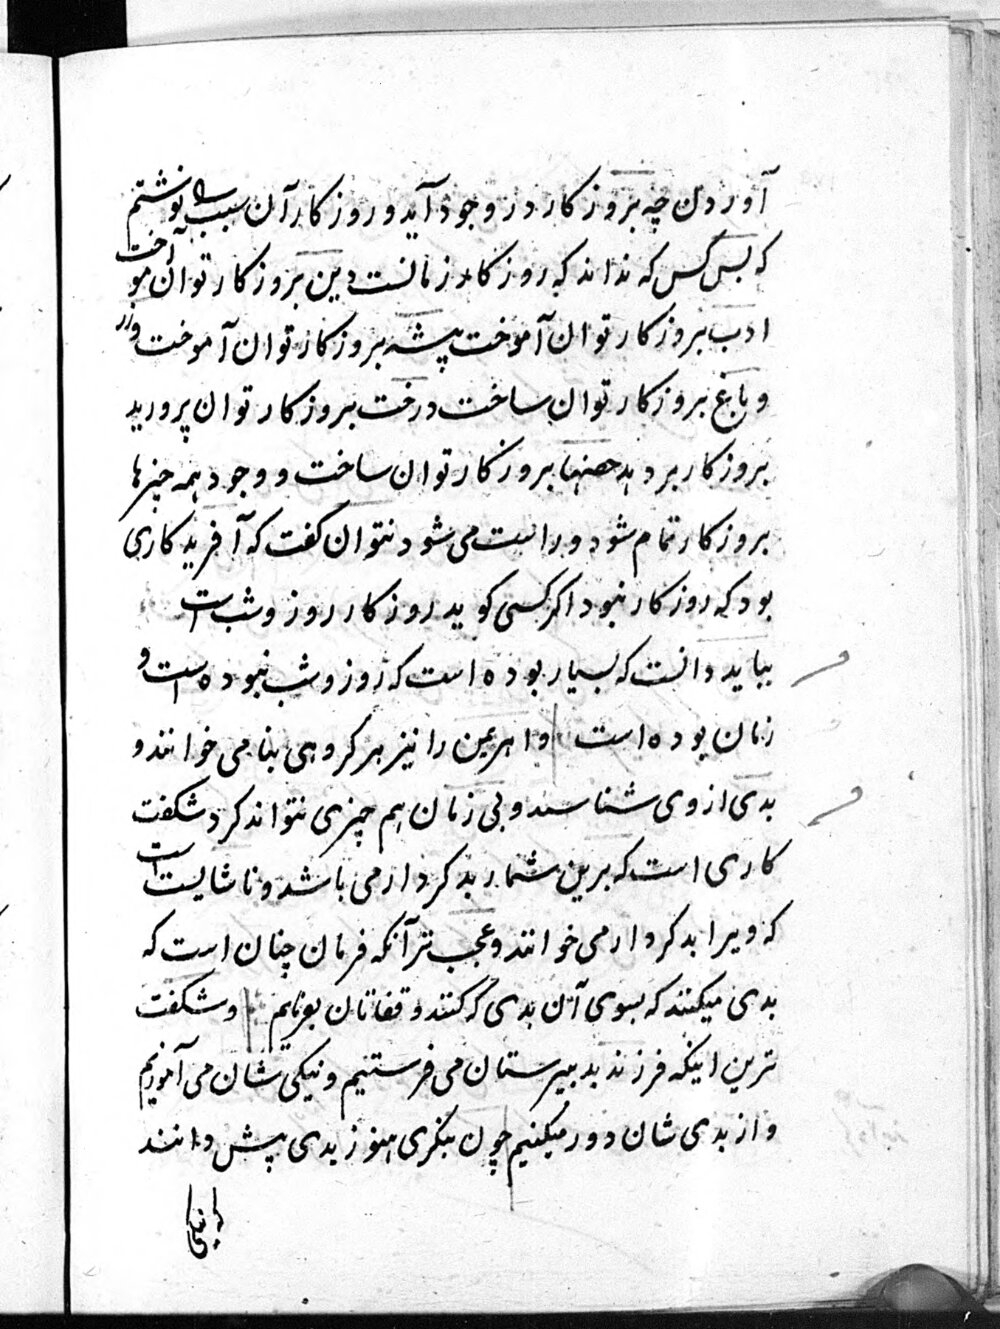 آوردن چه بروزکار در وجود آید و روزکار آن سبب را نوشتم
که بس کس که نداند که روزکار زمانست دین بروزکار توان آموخت
ادب بروزکار توان آموخت پیشه بروزکار توان آموخت ورز
و باغ بروزکار توان ساخت درخت بروزکار توان پرورید
بروزکار بر دهد بروزکار توان ساخت و وجود همه چیزها
بروزکار تمام شود و راست می شود نتوان کفت که آفریدکاری
بود که روزکار نبود اکر کسی کوید روزکار روز و شب است
بباید دانست که بسیار بوده است که روز و شب نبوده است و
زمان بوده است واهرمن را نیز هر کروهی بنامی خوانند و
بدی از وی شناسند و بی زمان هم چیزی نتواند کرد شکفت
کاری است که برین شمار بد کردار می باشد و ناشایست است
که ویرا بد کردار می خوانند و عجب تر آنکه فرمان چنان است که
بدی میکنند که بسوی آن بدی کر کنند و قفاتان بفرمایم و شکفت
ترین اینکه فرزند بدبیرستان می فرستیم و نیکی شان می آموزیم
و از بدی شان دور میکنیم چون بنکری هنوز بدی پیش دانند